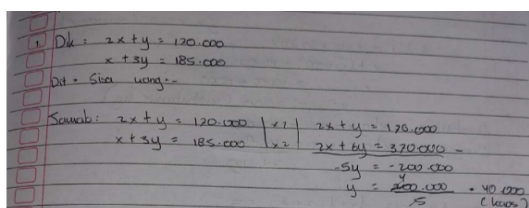 1. Dik : 2x + y = 120.000
x + 3y = 185.000
Dit = Sisa uang
Jawab : 2x + y = 120.000 | x 1 | 2x + y = 120.000
x + 3y = 185.000 | x 2 | 2x + 6y = 370.000 -
-5y = -200.000
y = 200.000 = 40.000
5 (kaos)